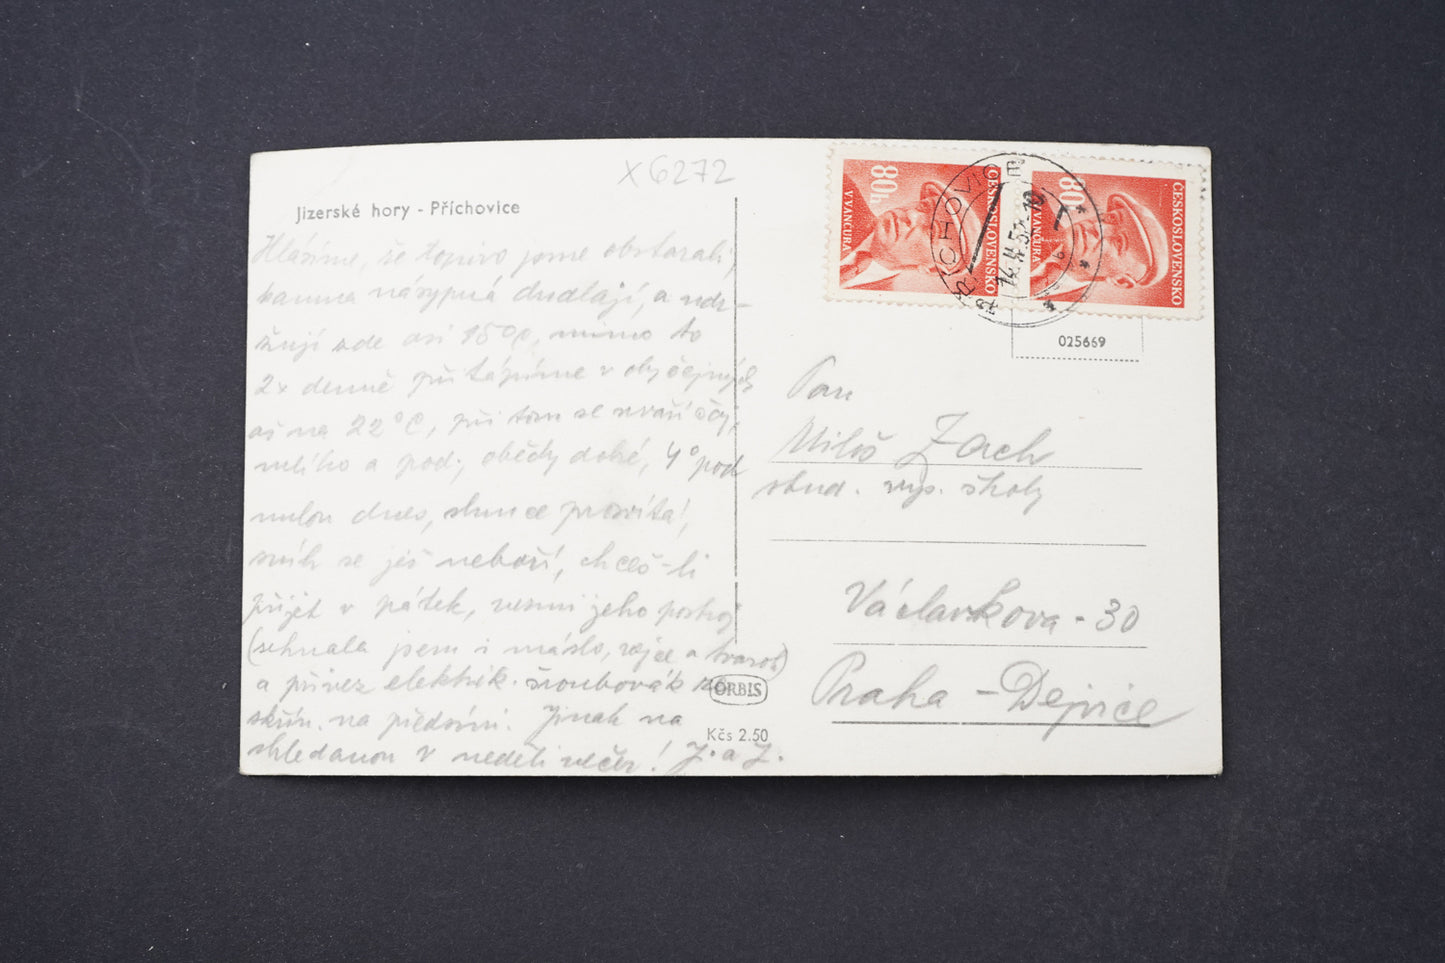 X 6272
Jizerské hory - Příchovice
Hlásíme, že topivo jsme obstarali,
kamna násypná dudlají, a udr-
žují zde asi 15°, mimo to
2x denně přitápíme v obyčejných
až na 22°C, při tom se uvaří čaj,
mlího a pod., obědy dobé, 4° pod
nulou dnes, slunce prosvítá,
sníh se ješ neboří, chceš-li
přijet v pátek, vezmi jeho postroj
(sehnala jsem i máslo, vejce a tvaroh)
a přivez elektrik. šroubovák ze
skřín. na předsíni. Jinak na
shledanou v neděli večer! J. a J.
ORBIS
Kčs 2.50
80h
V. VANČURA
ČESKOSLOVENSKO
80
VANČURA
ČESKOSLOVENSKO
PŘÍCHOVICE
025669
Pan
Miloš Zach
stud. vys. školy
Václavkova - 30
Praha - Dejvice